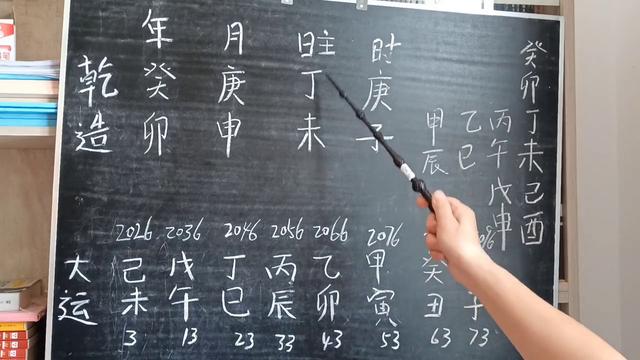 年 月 日主 时
乾 癸 庚 丁 庚
造 卯 申 未 子
癸卯 丁未 己酉
丙午 戊申
乙巳
甲辰
2026 2036 2046 2056 2066 2076
大 己 戊 丁 丙 乙 甲 癸
运 未 午 巳 辰 卯 寅 丑 子
3 13 23 33 43 53 63 73